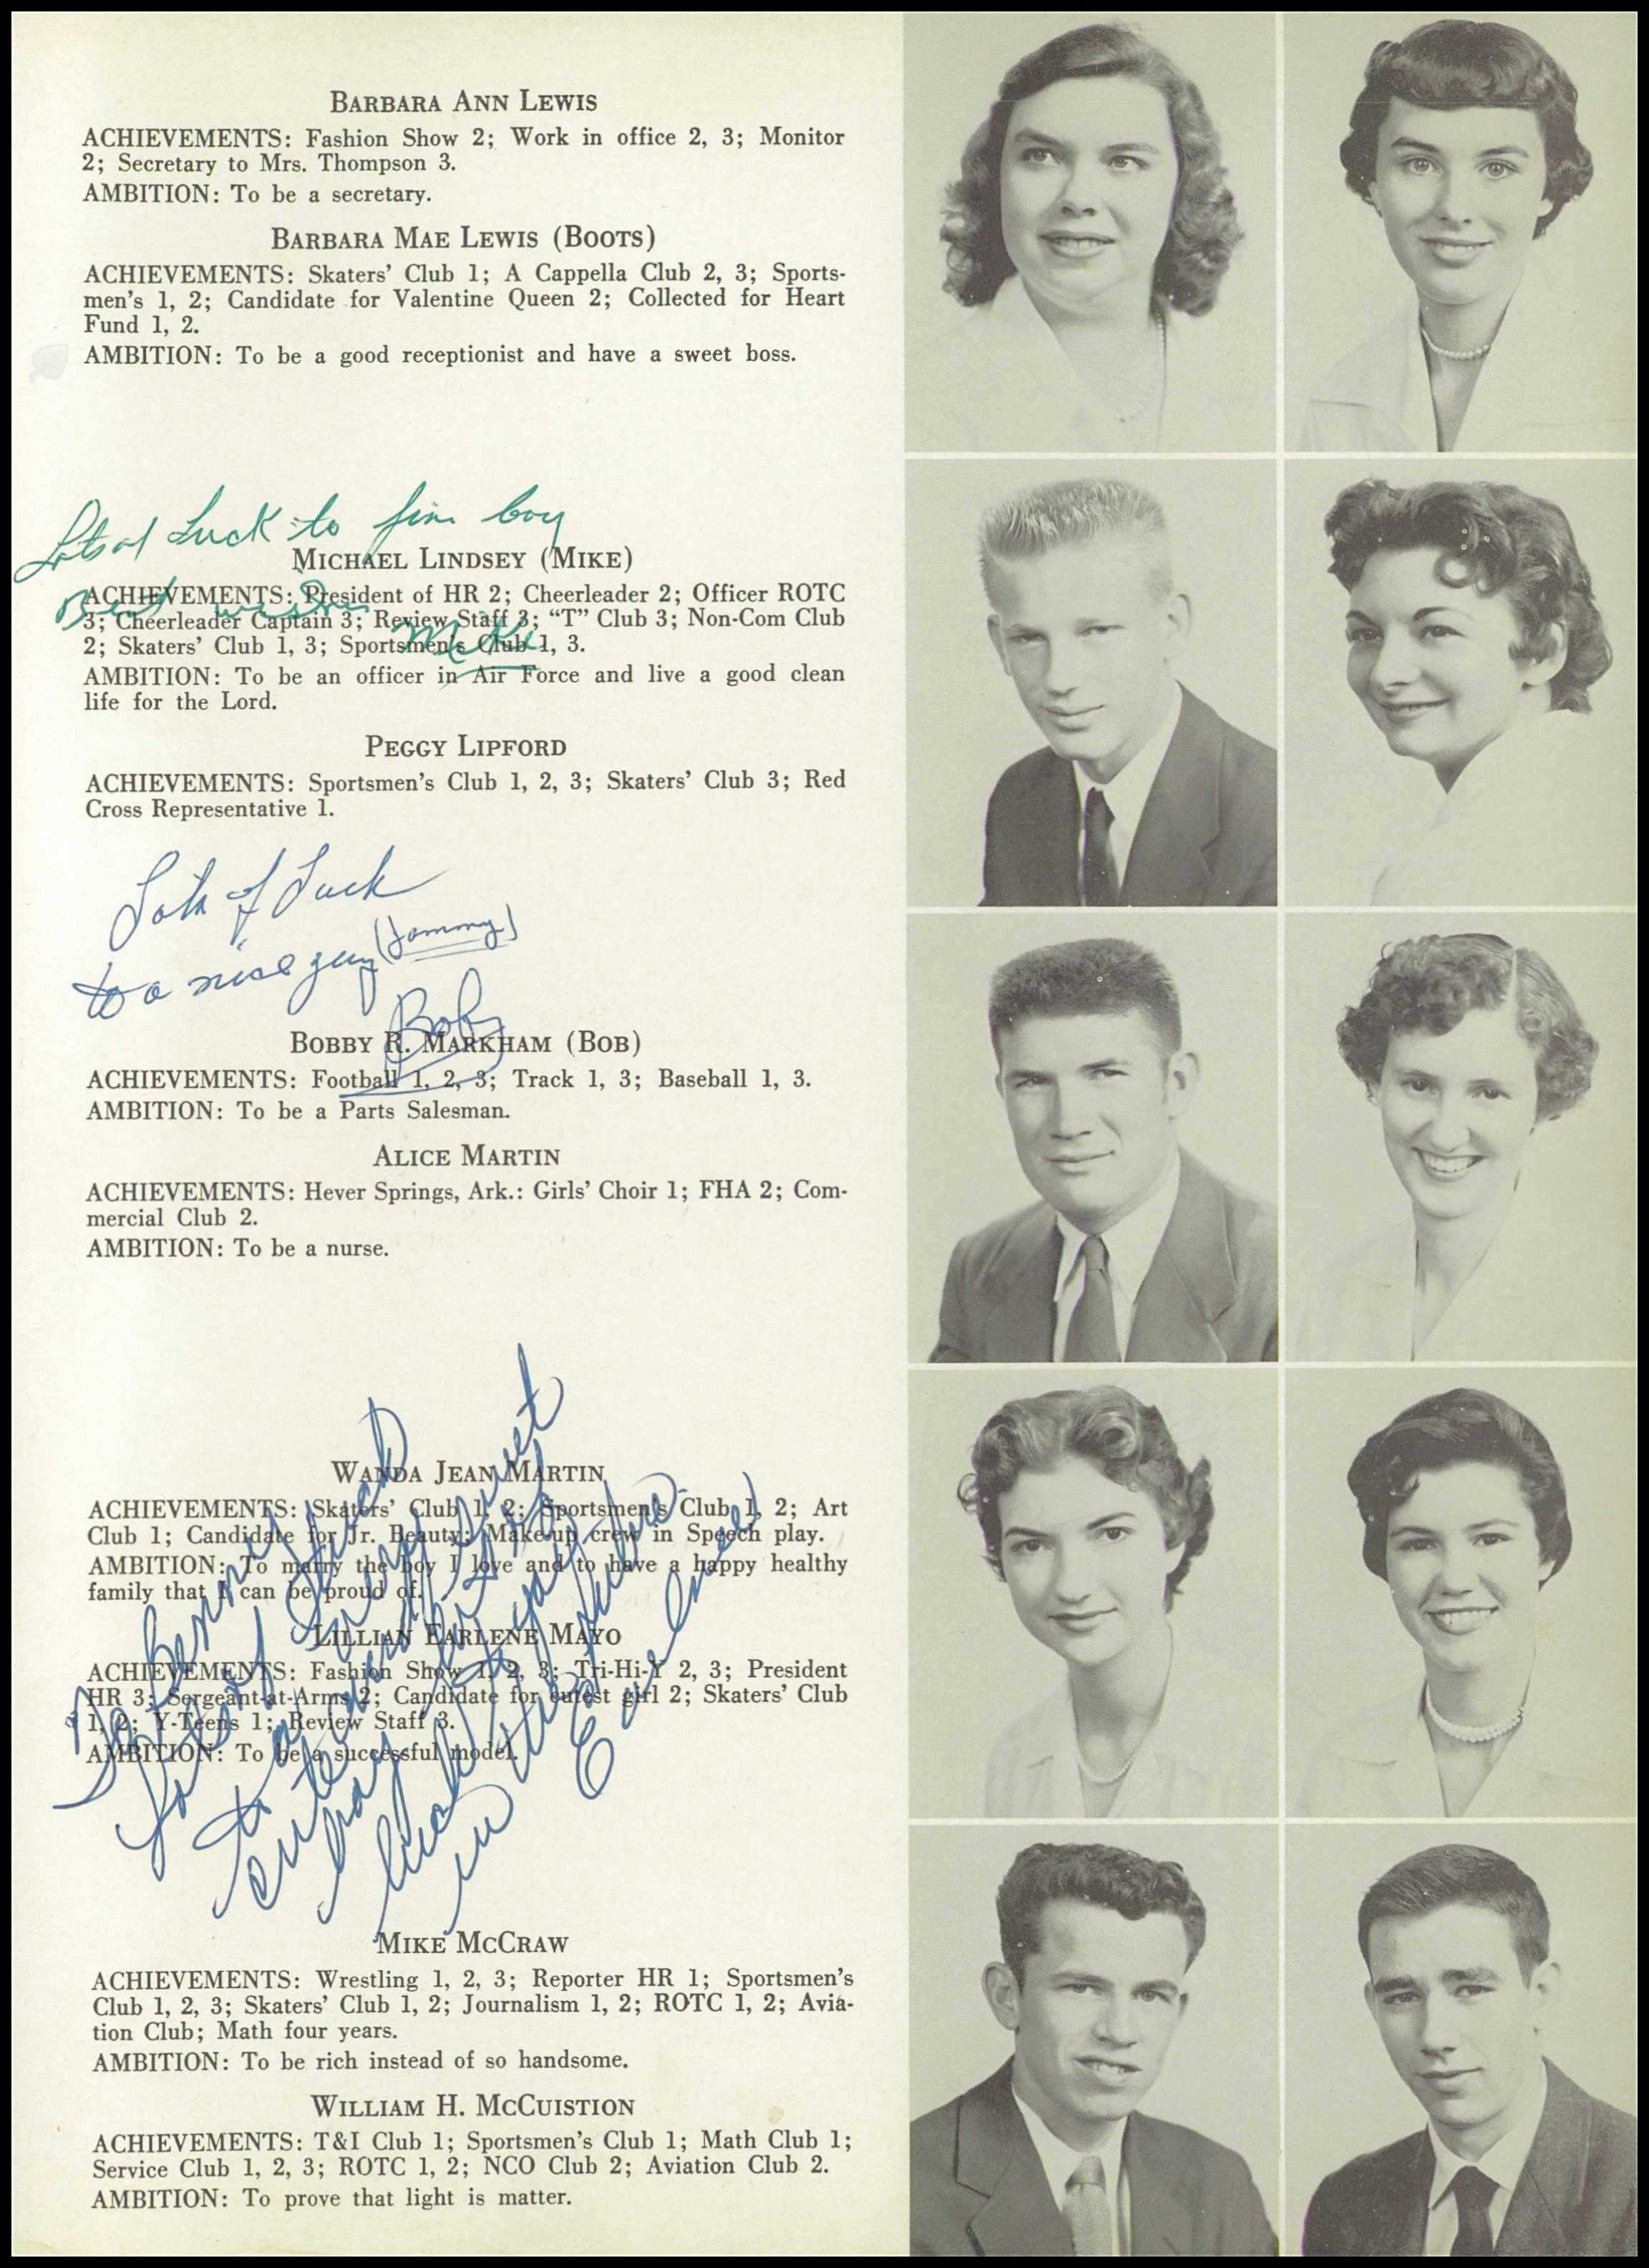 BARBARA ANN LEWIS
ACHIEVEMENTS: Fashion Show 2; Work in office 2, 3; Monitor
2; Secretary to Mrs. Thompson 3.
AMBITION: To be a secretary.
BARBARA MAE LEWIS (BOOTS)
ACHIEVEMENTS: Skaters' Club 1; A Cappella Club 2, 3; Sports-
men's 1, 2; Candidate for Valentine Queen 2; Collected for Heart
Fund 1, 2.
AMBITION: To be a good receptionist and have a sweet boss.
Lots of Luck to fine boy
MICHAEL LINDSEY (MIKE)
Best wishes
Mike
ACHIEVEMENTS: President of HR 2; Cheerleader 2; Officer ROTC
3; Cheerleader Captain 3; Review Staff 3; "T" Club 3; Non-Com Club
2; Skaters' Club 1, 3; Sportsmen's Club 1, 3.
AMBITION: To be an officer in Air Force and live a good clean
life for the Lord.
PEGGY LIPFORD
ACHIEVEMENTS: Sportsmen's Club 1, 2, 3; Skaters' Club 3; Red
Cross Representative 1.
Lots of Luck
to a nice guy (Tommy)
Bob
BOBBY R. MARKHAM (BOB)
ACHIEVEMENTS: Football 1, 2, 3; Track 1, 3; Baseball 1, 3.
AMBITION: To be a Parts Salesman.
ALICE MARTIN
ACHIEVEMENTS: Hever Springs, Ark.: Girls' Choir 1; FHA 2; Com-
mercial Club 2.
AMBITION: To be a nurse.
WANDA JEAN MARTIN
ACHIEVEMENTS: Skaters' Club 1, 2; Sportsmen's Club 1, 2; Art
Club 1; Candidate for Jr. Beauty; Make-up crew in Speech play.
AMBITION: To marry the boy I love and to have a happy healthy
family that I can be proud of.
LILLIAN EARLENE MAYO
ACHIEVEMENTS: Fashion Show 1, 2, 3; Tri-Hi-Y 2, 3; President
HR 3; Sergeant-at-Arms 2; Candidate for cutest girl 2; Skaters' Club
1, 2; Y-Teens 1; Review Staff 3.
AMBITION: To be a successful model.
Lots of
to a very sweet
cute and
luck to you
in the future
Earlene
MIKE MCCRAW
ACHIEVEMENTS: Wrestling 1, 2, 3; Reporter HR 1; Sportsmen's
Club 1, 2, 3; Skaters' Club 1, 2; Journalism 1, 2; ROTC 1, 2; Avia-
tion Club; Math four years.
AMBITION: To be rich instead of so handsome.
WILLIAM H. MCCUISTION
ACHIEVEMENTS: T&I Club 1; Sportsmen's Club 1; Math Club 1;
Service Club 1, 2, 3; ROTC 1, 2; NCO Club 2; Aviation Club 2.
AMBITION: To prove that light is matter.